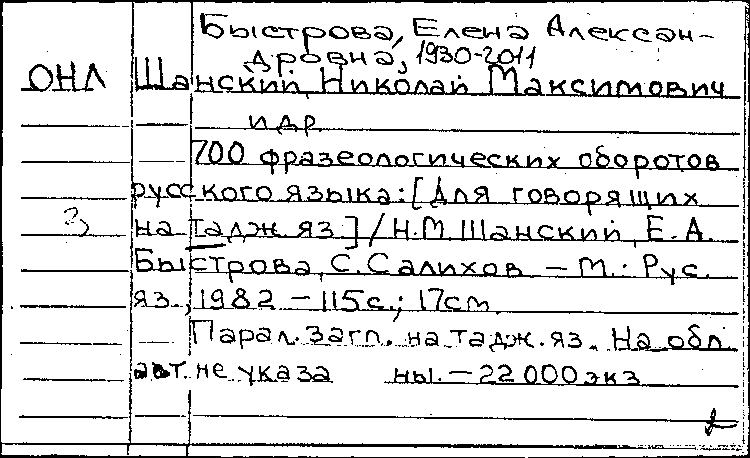 Быстрова, Елена Алексан-
дровна, 1930-2011
ОНЛ Шанский, Николай Максимович
и др.
700 фразеологических оборотов
русского языка: [Для говорящих
3 на тадж. яз.] / Н.М. Шанский, Е.А.
Быстрова, С. Салихов. — М.: Рус.
яз., 1982. — 115с.; 17см.
Парал. загл. на тадж. яз. На обл.
авт. не указа ны. — 22000 экз.